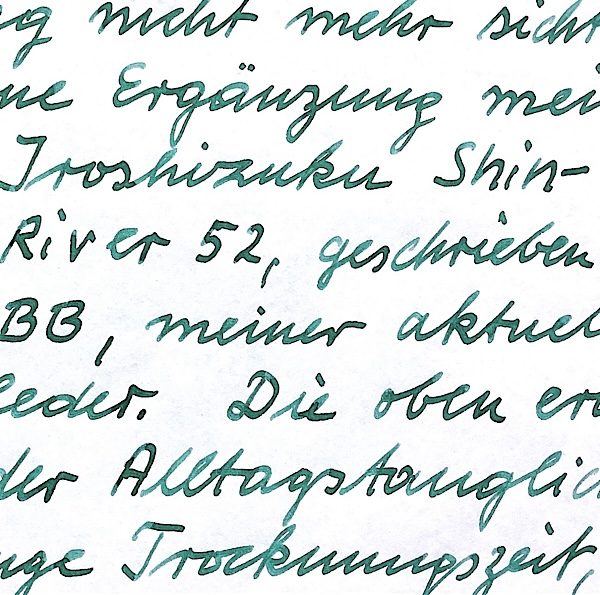 g nicht mehr sicht
ne Ergänzung mei
Iroshizuku Shin-
River 52, geschrieben
BB, meiner aktuel
leder. Die oben er
der Alltagstauglic
nge Trocknungszeit,